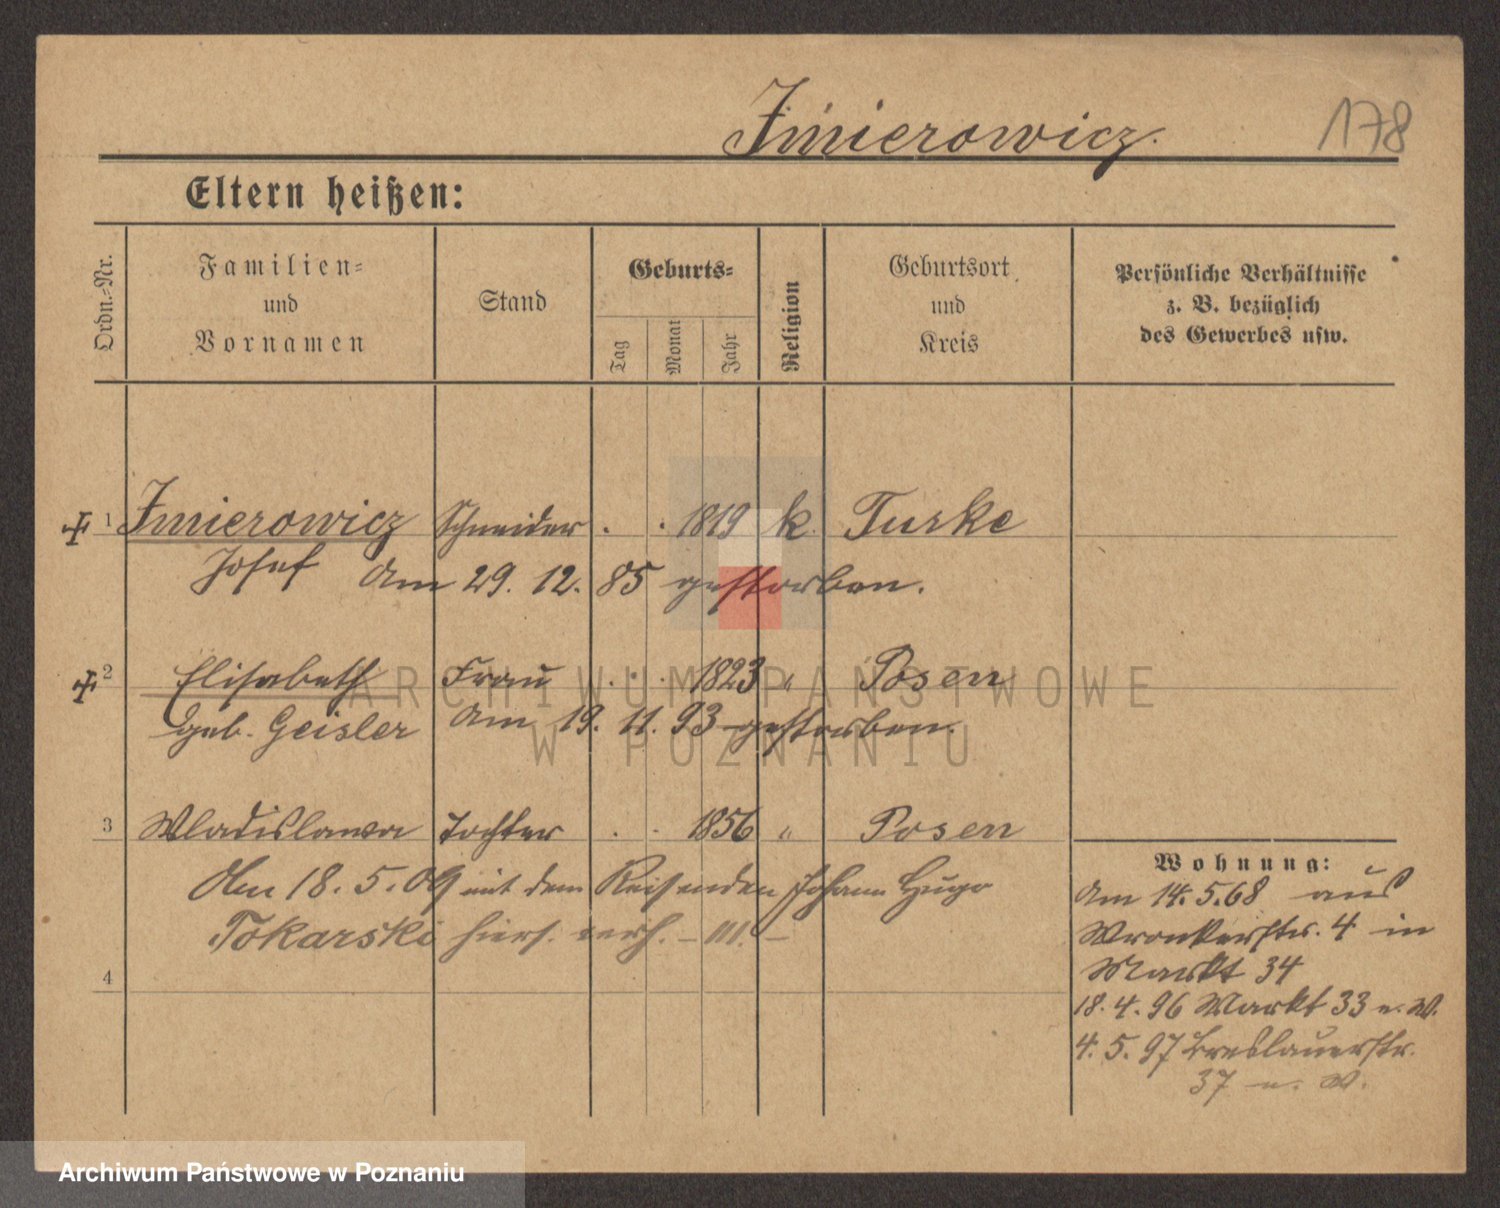 Imierowicz.
178
Eltern heißen:
Ordn.-Nr.
Familien-
und
Vornamen
Stand
Geburts-
Tag
Monat
Jahr
Religion
Geburtsort
und
Kreis
Persönliche Verhältnisse
z. B. bezüglich
des Gewerbes usw.
1 Imierowicz Schneider . . 1819 k. Turke
Josef Am 29. 12. 85 gestorben.
2 Elisabeth Frau . . . 1823 " Posen
geb. Geisler Am 19. 11. 93 gestorben.
3 Wladislawa Tochter . . 1856 " Posen
Am 18. 5. 09 mit dem Reisenden Johann Hugo
Tokarski hiers. verh.
4
Wohnung:
Am 14. 5. 68 aus
Wronkerstr. 4 in
Markt 34
18. 4. 96 Markt 33 n. W.
4. 5. 97 Breslauerstr.
37 n. W.
ARCHIWUM PAŃSTWOWE
W POZNANIU
Archiwum Państwowe w Poznaniu